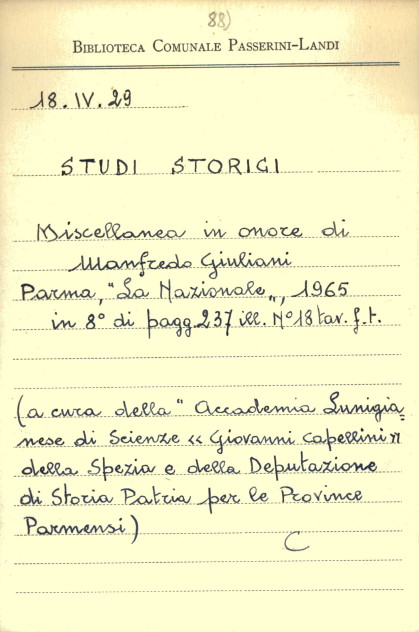 88)
BIBLIOTECA COMUNALE PASSERINI-LANDI
18.IV.29
STUDI STORICI
Miscellanea in onore di
Manfredo Giuliani
Parma, "La Nazionale„, 1965
in 8° di pagg.237 ill. N°18 tav. f.t.
(a cura della "Accademia Lunigia=
nese di Scienze « Giovanni Capellini»
della Spezia e della Deputazione
di Storia Patria per le Province
Parmensi)
C